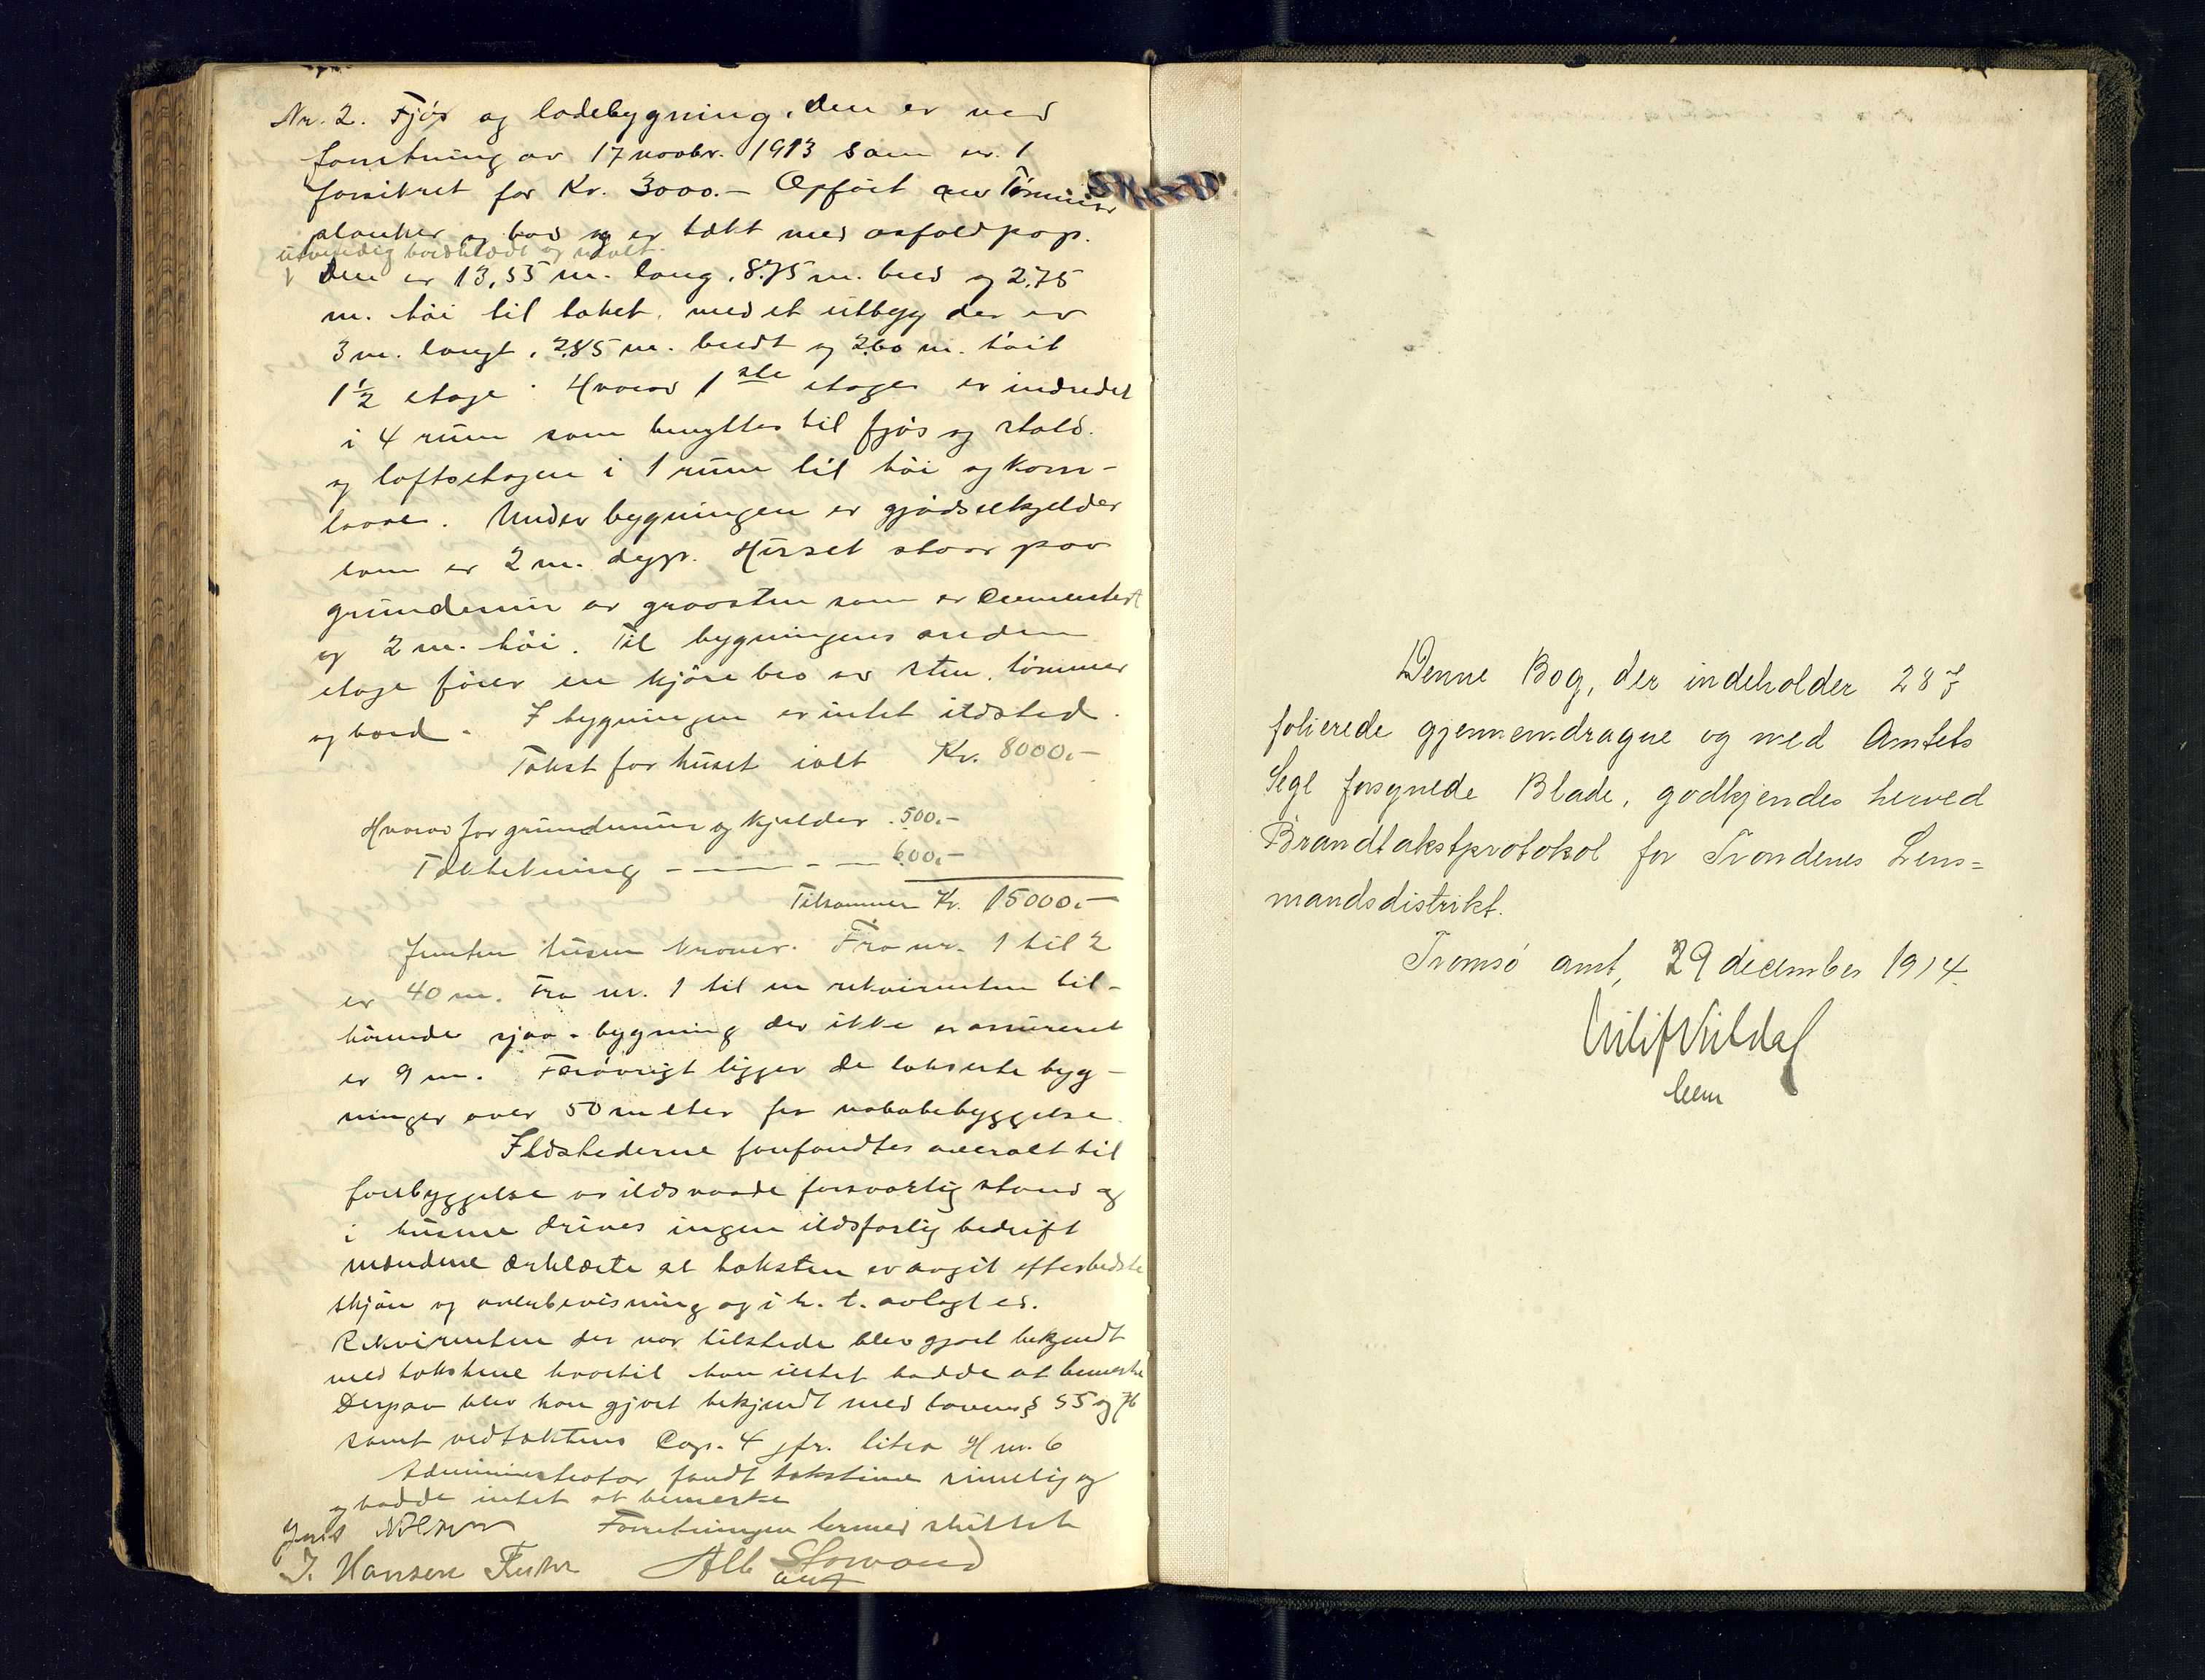 Nr. 2. Fjøs og ladebygning. Den er ved
forretning av 17 novbr. 1913 som nr. 1
forsikret for Kr. 3000.- Opført av Tømmer
planker og bord og er tækt med asfaldpap.
utvendig bordklædt og malt.
Den er 13,55 m. lang, 8.75 m. bred og 2.75
m. høi til taket, med et utbygg der er
3 m. langt, 2.85 m. bredt og 2.60 m. høit
1½ etage. Hvorav 1ste etage er indredet
i 4 rum som benyttes til fjøs og stald.
og loftsetagen i 1 rum til høi og korn-
laave. Under bygningen er gjødselkjelder
som er 2 m. dyp. Huset staar paa
grundmur av graasten som er Cementert
og 2 m. høi. Til bygningens anden
etage fører en kjørebro av sten, tømmer
og bord. I bygningen er intet ildsted.
Takst for huset ialt Kr. 8000.-
Hvorav for grundmur og kjelder . 500.-
Taktekning - - - - 600.-
Tilsammen Kr. 15000.-
Femten tusen kroner. Fra nr. 1 til 2
er 40 m. Fra nr. 1 til en rekvirenten til-
hørende sjaa-bygning der ikke er assureret
er 9 m. Forøvrigt ligger de takserte byg-
ninger over 50 meter fra nabobebyggelse.
Ildstederne forefandtes overalt til
forebyggelse av ildsvaade forsvarlig stand og
i husene drives ingen ildsfarlig bedrift
mændene erklærte at taksten er avgit efter bedste
skjøn og overbevisning og i h. t. avlagt ed.
Rekvirenten der var tilstede blev gjort bekjendt
med takstene hvortil han intet hadde at bemerke
Derpaa blev han gjort bekjendt med lovens § 55 og 76
samt vedtæktens Cap. 4 jfr. litra H nr. 6
Administrator fandt takstene rimelig og
og hadde intet at bemerke
Forretningen hermed sluttet
Jens Nilsen
J. Hansen Alb
Denne Bog, der indeholder 287
folierede gjennemdragne og med Amtets
Segl forsynede Blade, godkjendes herved
Brandtakstprotokol for Trondenes Lens=
mandsdistrikt.
Tromsø amt, 29 december 1914.